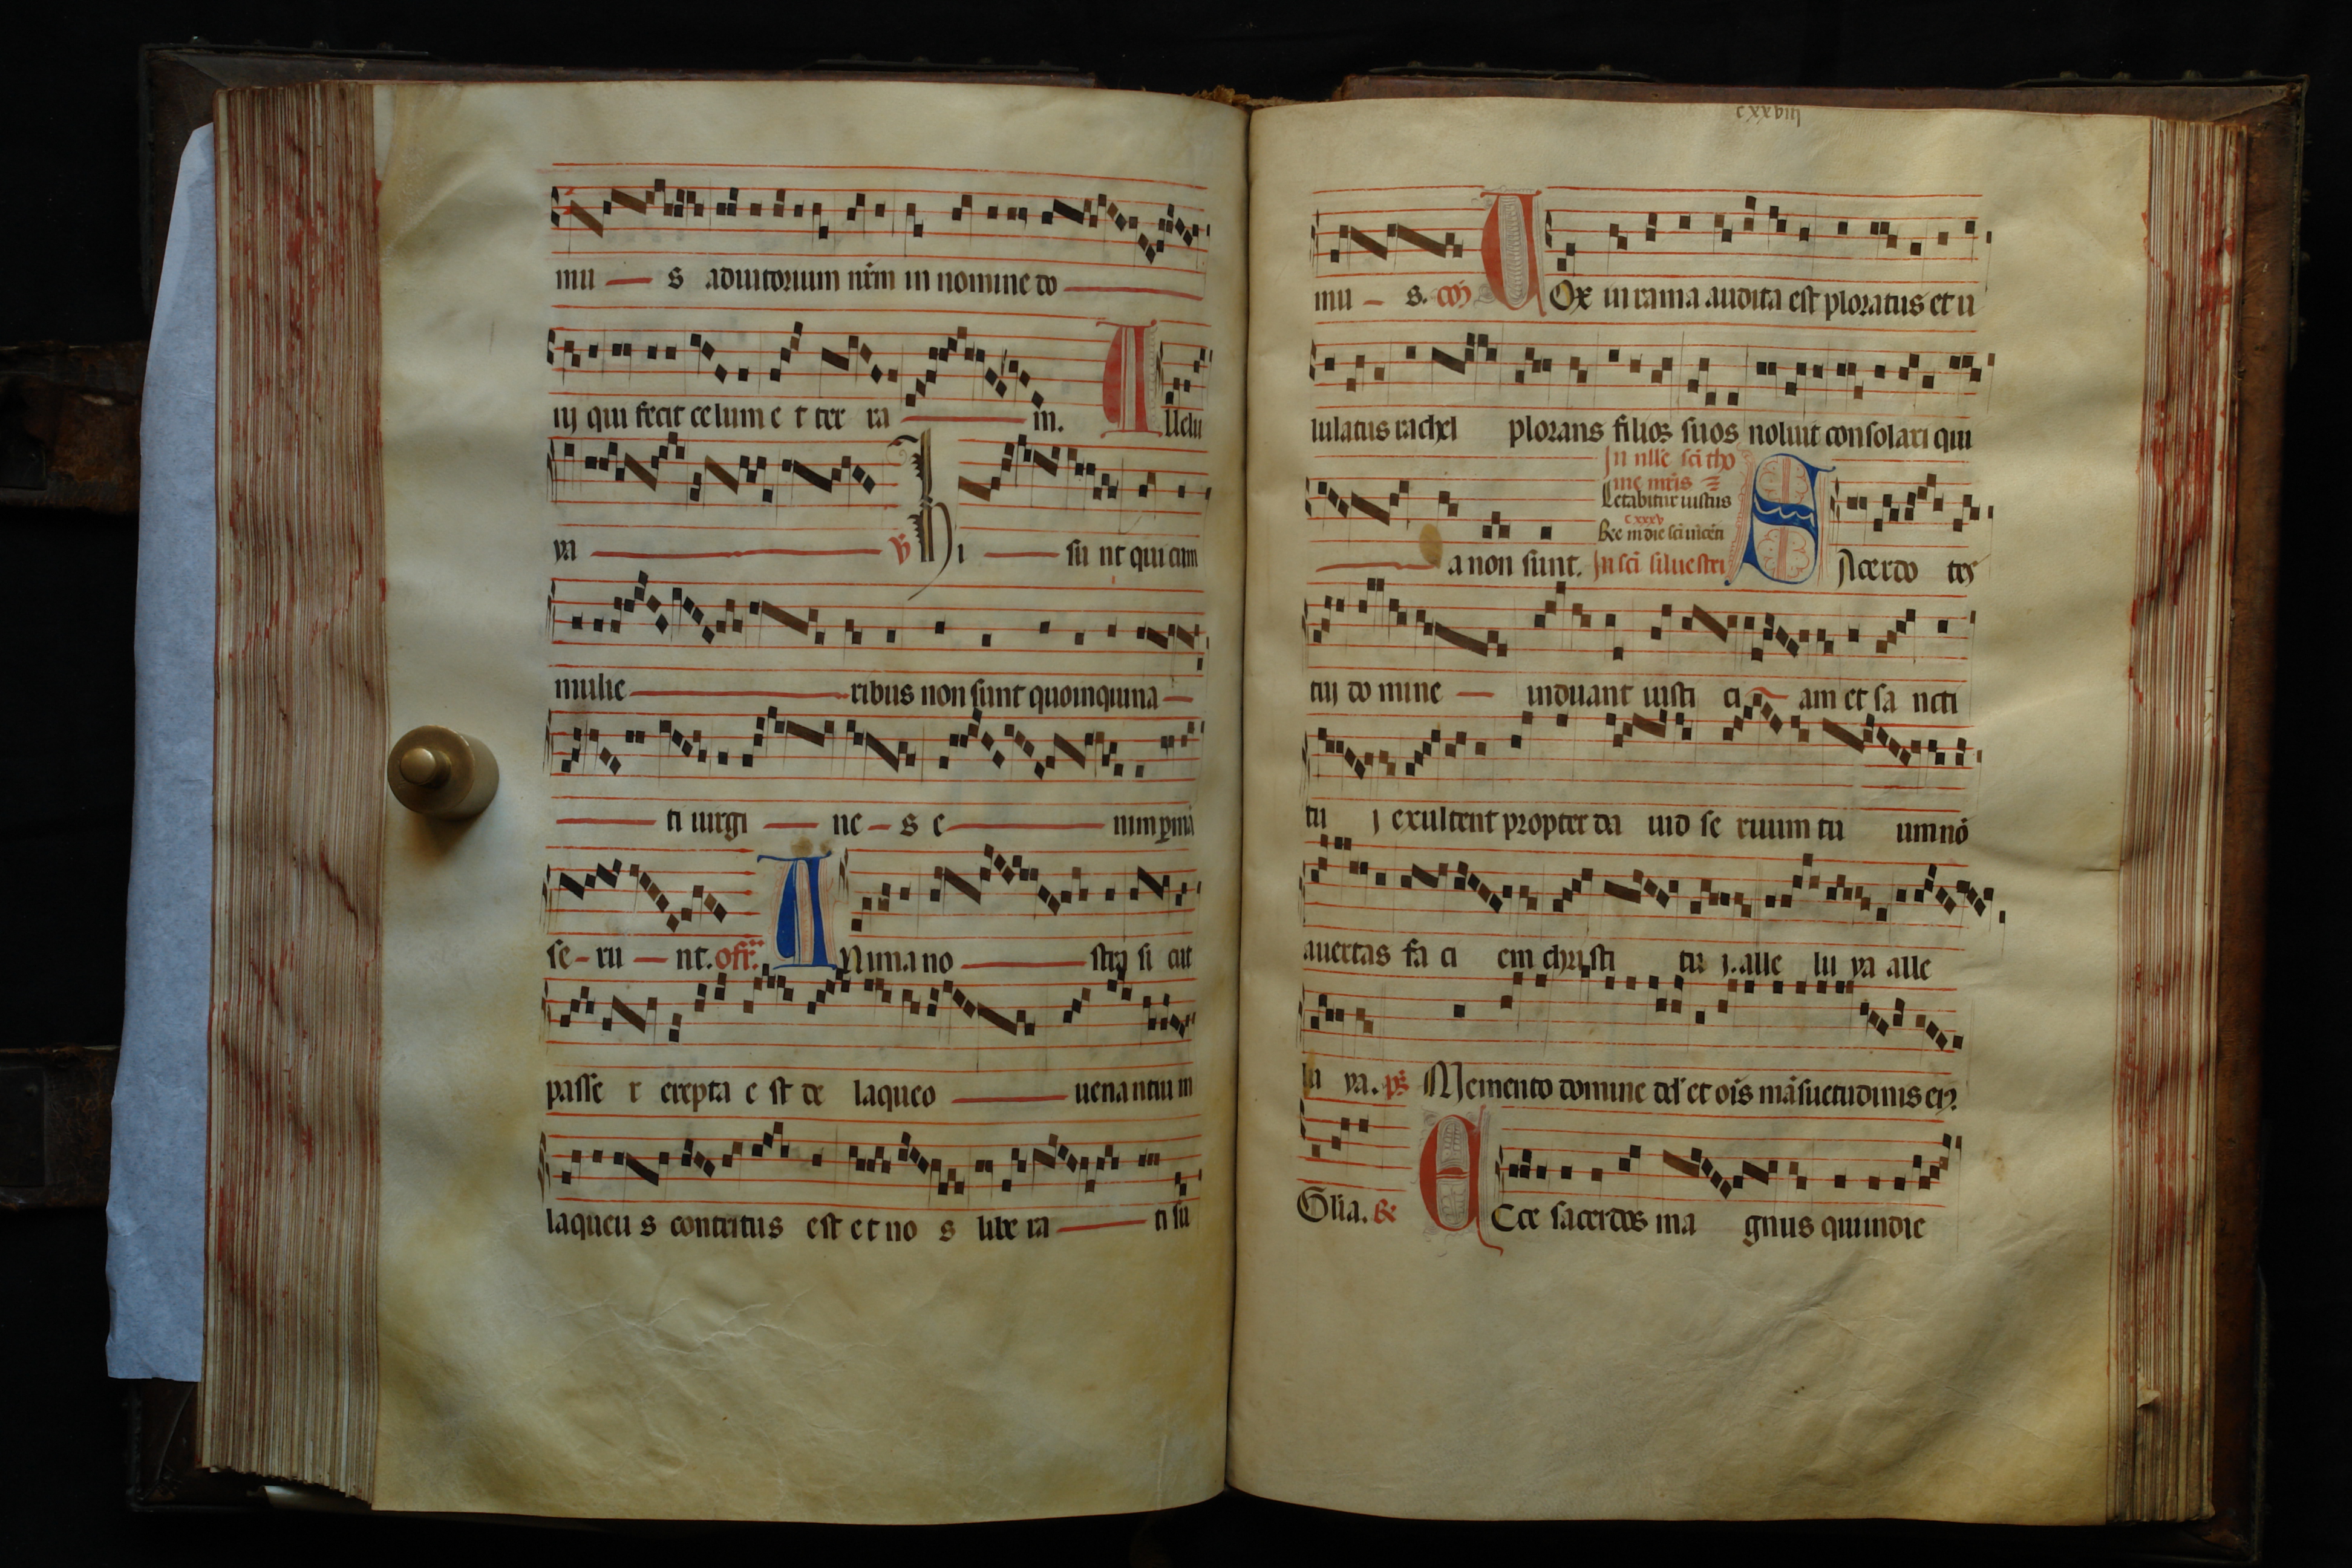 mu — s adiutorium nr̄m in nomine do —
nj qui fecit celum e t ter ra — m. A llelu
ya — ℣ Hi — su nt qui cum
mulie — ribus non sunt quoinquina —
— ti uirgi — ne – s e — nim ꝑma
se – ru — nt. off̄. A Nima no — stra si cut
passe r erepta e st de laqueo — uenantiu m
laqueu s contritus est et no s libe ra — ti su
cxxviij
mu – s. cō V Ox in rama audita est ploratus et u
lulatus rachel plorans filios suos noluit consolari qui
In nll'e sci tho
me mr̄is
Letabitur iustus
cxxxv
Re in die sci uicēti
— a non sunt. In sci siluestri S Acerdo tes
tuj do mine — induant iusti ci — am et sa ncti
tu j exultent propter da uid se ruum tu um nō
auertas fa ci em christi tu j. alle lu ya alle
lu ya. ps̄ Memento domine dd' et oīs māsuetudinis eiꝰ
Glīa. R̄ E Cce sacerdos ma gnus qui in die